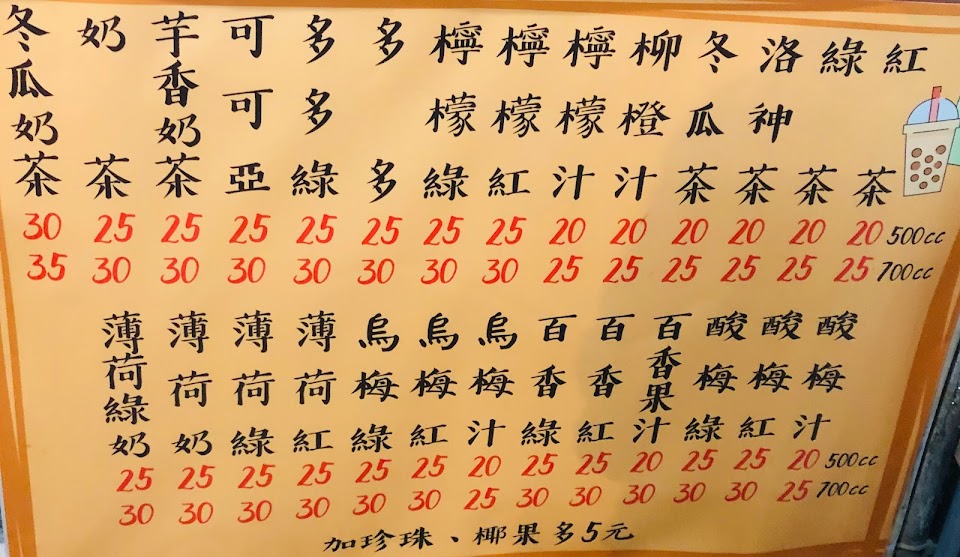 紅茶
綠茶
洛神茶
冬瓜茶
柳橙汁
檸檬汁
檸檬紅
檸檬綠
多多
多多綠
可可亞
芋香奶茶
奶茶
冬瓜奶茶
30 25 25 25 25 25 25 25 20 20 20 20 20 20 500cc
35 30 30 30 30 30 30 30 25 25 25 25 25 25 700cc
酸梅汁
酸梅紅
酸梅綠
百香果汁
百香紅
百香綠
烏梅汁
烏梅紅
烏梅綠
薄荷紅
薄荷綠
薄荷奶
薄荷綠奶
25 25 25 25 25 25 20 25 25 20 25 25 20 500cc
30 30 30 30 30 30 25 30 30 30 30 30 25 700cc
加珍珠、椰果多5元